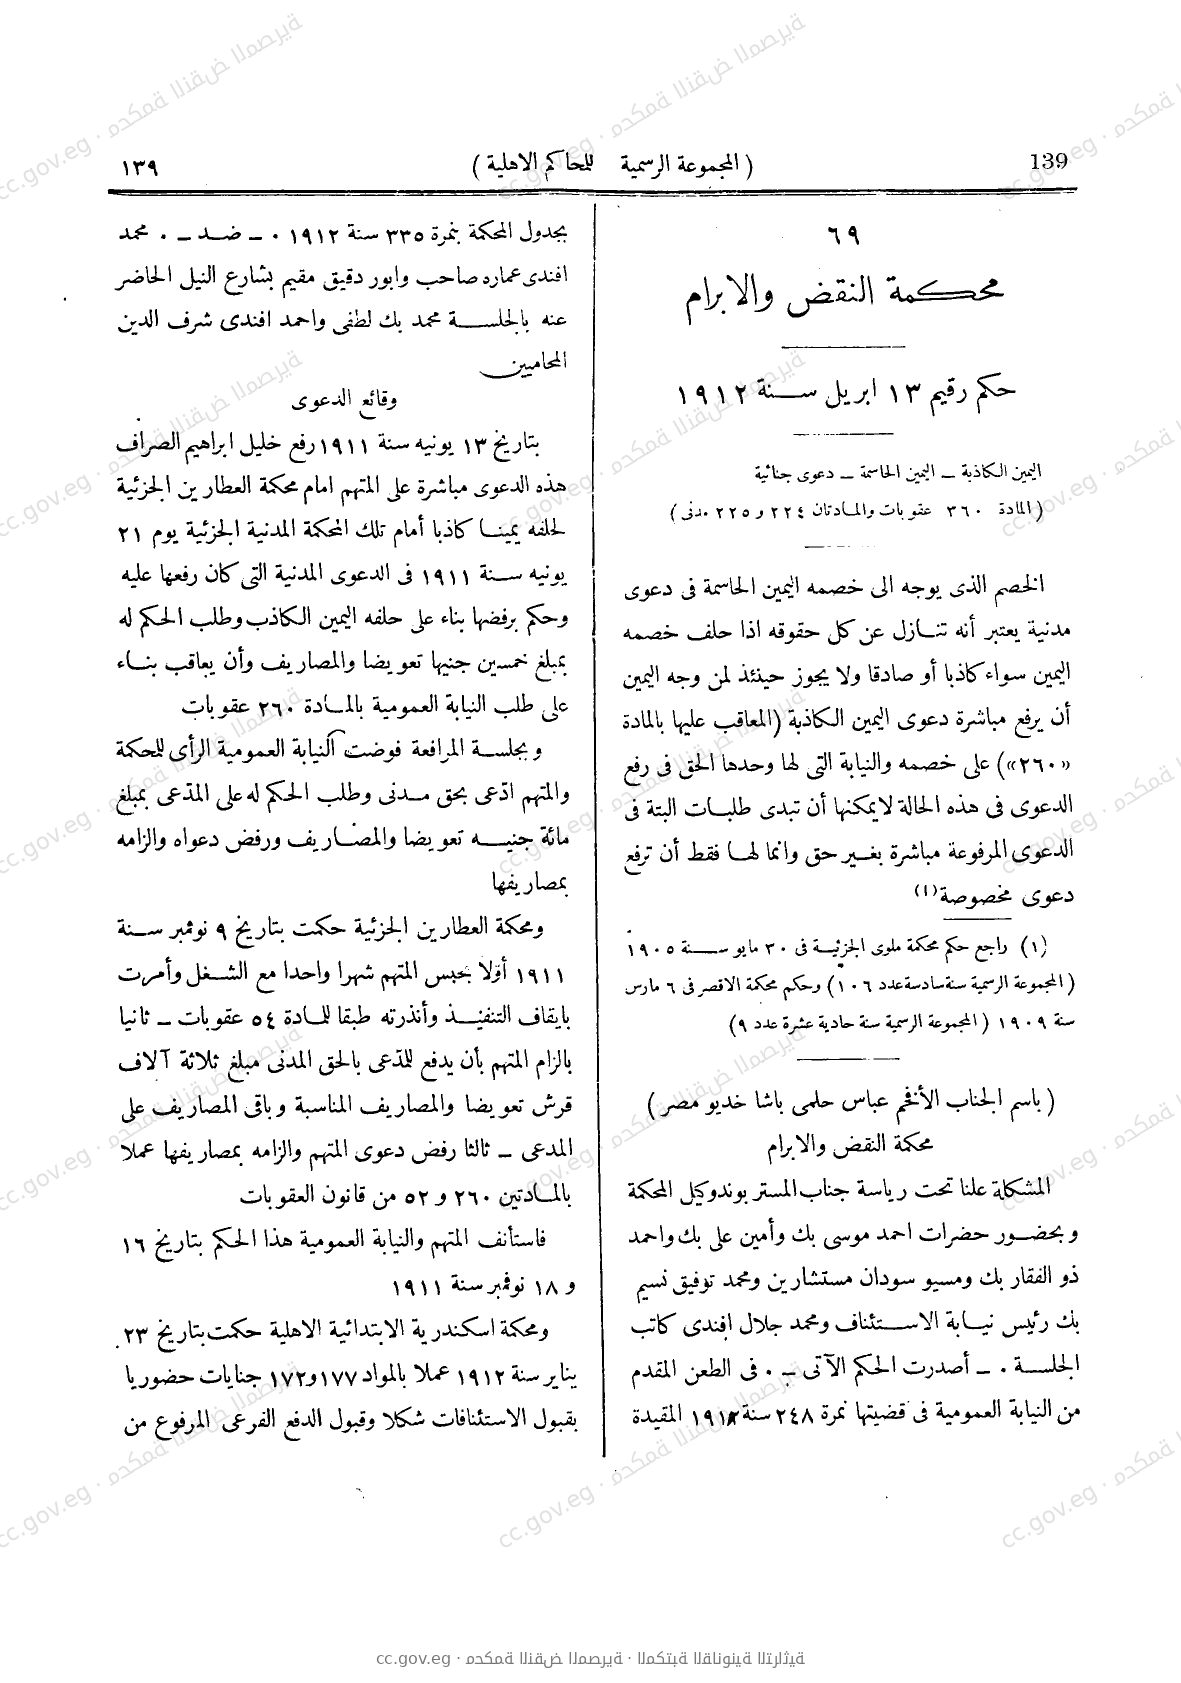 139
( المجموعة الرسمية للمحاكم الاهلية )
١٣٩
٦٩
محكمة النقض والابرام
حكم رقيم ١٣ ابريل سنة ١٩١٢
اليمين الكاذبة – اليمين الحاسمة – دعوى جنائية
( المادة ٣٦٠ عقوبات والمادتان ٢٢٤ و ٢٢٥ مدنى )
الخصم الذى يوجه الى خصمه اليمين الحاسمة فى دعوى
مدنية يعتبر أنه تنازل عن كل حقوقه اذا حلف خصمه
اليمين سواء كاذبا أو صادقا ولا يجوز حينئذ لمن وجه اليمين
أن يرفع مباشرة دعوى اليمين الكاذبة (المعاقب عليها بالمادة
«٢٦٠») على خصمه والنيابة التى لها وحدها الحق فى رفع
الدعوى فى هذه الحالة لايمكنها أن تبدى طلبات البتة فى
الدعوى المرفوعة مباشرة بغير حق وانما لها فقط أن ترفع
دعوى مخصوصة(١)
(١) راجع حكم محكمة ملوى الجزئية فى ٣٠ مايو سنة ١٩٠٥
( المجموعة الرسمية سنة سادسة عدد ١٠٦ ) وحكم محكمة الاقصر فى ٦ مارس
سنة ١٩٠٩ ( المجموعة الرسمية سنة حادية عشرة عدد ٩ )
( باسم الجناب الأفخم عباس حلمى باشا خديو مصر )
محكمة النقض والابرام
المشكلة علنا تحت رياسة جناب المستر بوند وكيل المحكمة
و بحضور حضرات احمد موسى بك وأمين على بك واحمد
ذو الفقار بك ومسيو سودان مستشارين ومحمد توفيق نسيم
بك رئيس نيابة الاستئناف ومحمد جلال افندى كاتب
الجلسة . – أصدرت الحكم الآتى – . فى الطعن المقدم
من النيابة العمومية فى قضيتها نمرة ٢٤٨ سنة ١٩١٢ المقيدة
بجدول المحكمة بنمرة ٣٣٥ سنة ١٩١٢ . – ضد – . محمد
افندى عماره صاحب وابور دقيق مقيم بشارع النيل الحاضر
عنه بالجلسة محمد بك لطفى واحمد افندى شرف الدين
المحاميين
وقائع الدعوى
بتاريخ ١٣ يونيه سنة ١٩١١ رفع خليل ابراهيم الصراف
هذه الدعوى مباشرة على المتهم امام محكمة العطارين الجزئية
لحلفه يمينا كاذبا أمام تلك المحكمة المدنية الجزئية يوم ٢١
يونيه سنة ١٩١١ فى الدعوى المدنية التى كان رفعها عليه
وحكم برفضها بناء على حلفه اليمين الكاذب وطلب الحكم له
بمبلغ خمسين جنيها تعويضا والمصاريف وأن يعاقب بناء
على طلب النيابة العمومية بالمادة ٢٦٠ عقوبات
و بجلسة المرافعة فوضت النيابة العمومية الرأى للمحكمة
والمتهم ادّعى بحق مدنى وطلب الحكم له على المدّعى بمبلغ
مائة جنيه تعويضا والمصاريف ورفض دعواه والزامه
بمصاريفها
ومحكمة العطارين الجزئية حكمت بتاريخ ٩ نوفمبر سنة
١٩١١ أوّلا بحبس المتهم شهرا واحدا مع الشغل وأمرت
بايقاف التنفيذ وأنذرته طبقا للمادة ٥٤ عقوبات – ثانيا
بالزام المتهم بأن يدفع للمدّعى بالحق المدنى مبلغ ثلاثة آلاف
قرش تعويضا والمصاريف المناسبة و باقى المصاريف على
المدعى – ثالثا رفض دعوى المتهم والزامه بمصاريفها عملا
بالمادتين ٢٦٠ و ٥٢ من قانون العقوبات
فاستأنف المتهم والنيابة العمومية هذا الحكم بتاريخ ١٦
و ١٨ نوفمبر سنة ١٩١١
ومحكمة اسكندرية الابتدائية الاهلية حكمت بتاريخ ٢٣
يناير سنة ١٩١٢ عملا بالمواد ١٧٧ و ١٧٢ جنايات حضوريا
بقبول الاستئنافات شكلا وقبول الدفع الفرعى المرفوع من
cc.gov.eg · محكمة النقض المصرية · المكتبة القانونية التراثية